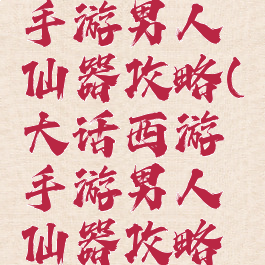 手游男人
仙器攻略(
大话西游
手游男人
仙器攻略